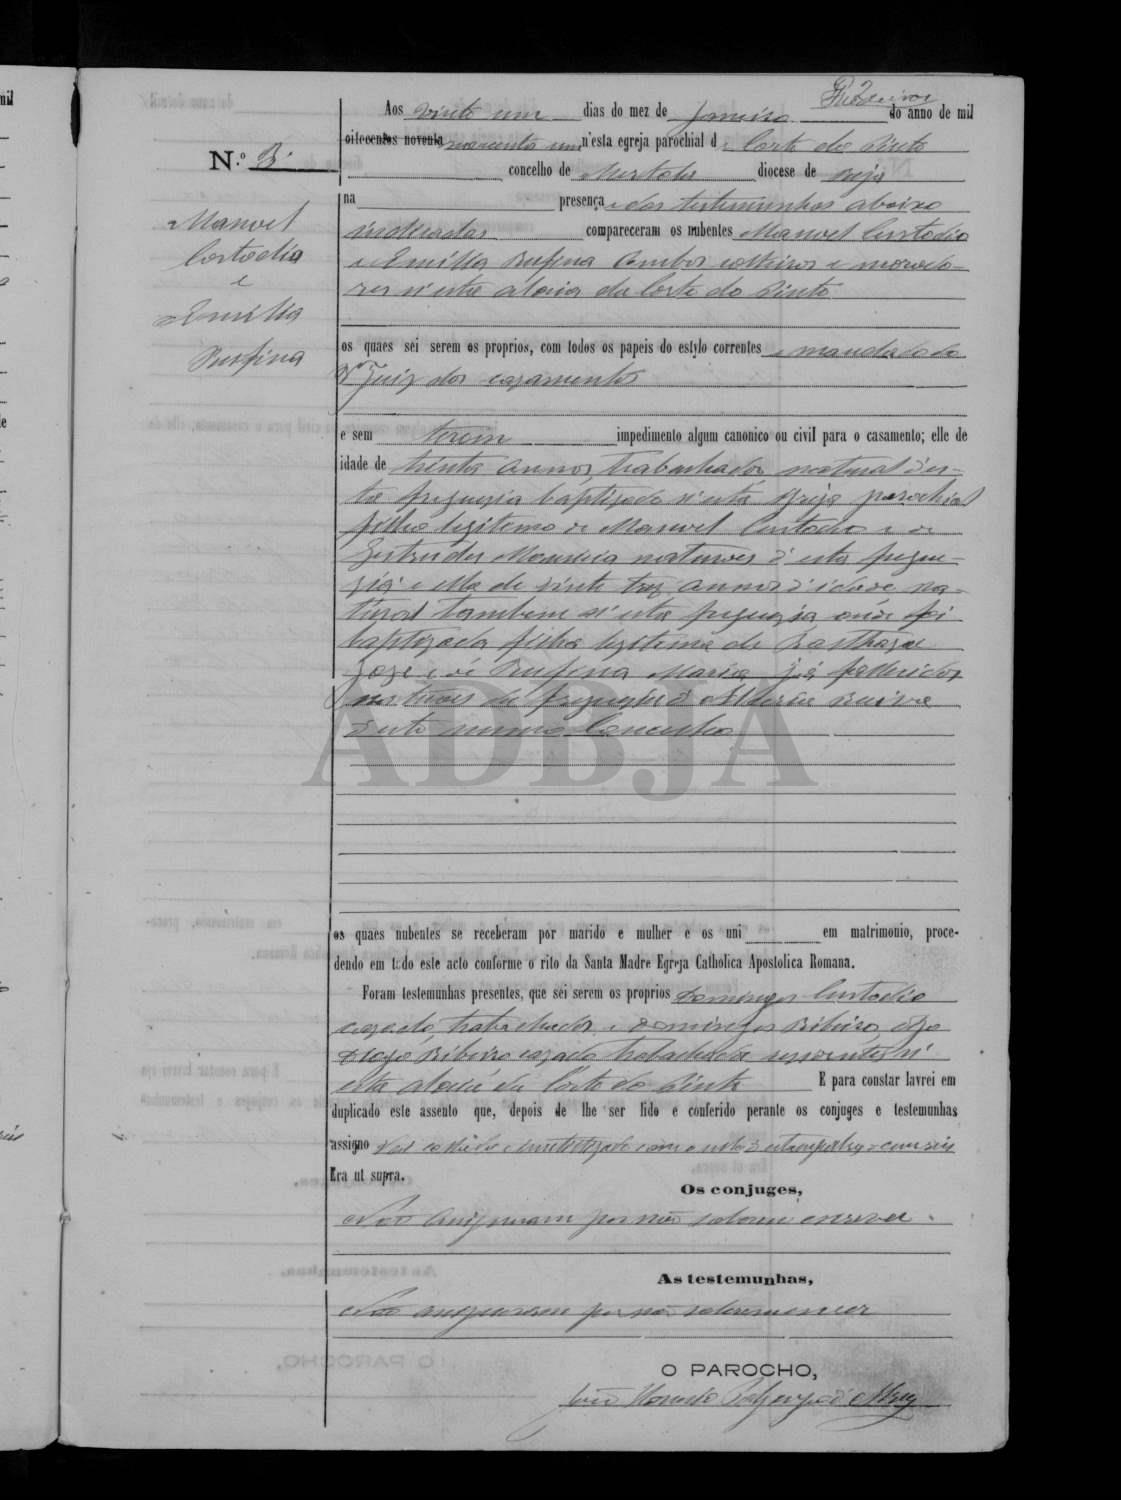 Aos vinte um dias do mez de Janeiro do anno de mil
oitocentos noventa novecentos um n'esta egreja parochial d Corte do Pinto
concelho de Mertola diocese de Beja
na presença das testemunhas abaixo
indicadas compareceram os nubentes Manoel Custodio
e Emilia Rufina ambos solteiros e morado-
res n'esta aldeia da Corte do Pinto
os quaes sei serem os proprios, com todos os papeis do estylo correntes e mandado do
Juiz dos cazamentos
e sem terem impedimento algum canonico ou civil para o casamento; elle de
idade de trinta annos, trabalhador natural d'es-
ta freguezia baptizado n'esta Igreja parochial
filho legitimo de Manoel Custodio e de
Gertrudes naturaes d'esta fregue-
zia e ella de vinte trez annos d'idade na-
tural tambem n'esta freguezia onde foi
baptizada filha legitima de Balthazar
Joze e de Rufina Maria já fallecidos
naturaes da freguezia d
d'esto mesmo Concelho
ADBJA
os quaes nubentes se receberam por marido e mulher e os uni em matrimonio, proce-
dendo em todo este acto conforme o rito da Santa Madre Egreja Catholica Apostolica Romana.
Foram testemunhas presentes, que sei serem os proprios Domingos Custodio
cazado, trabalhador e Domingos Ribeiro
Ribeiro cazado trabalhador n'
esta aldeia da Corte do Pinto E para constar lavrei em
duplicado este assento que, depois de lhe ser lido e conferido perante os conjuges e testemunhas
assigno
Era ut supra.
Os conjuges,
Não assignaram por não saberem escrever.
As testemunhas,
Não assignaram por não saberem escrever
O PAROCHO,
N.º 3
Manoel
Costodio
e
Emilia
Rufina